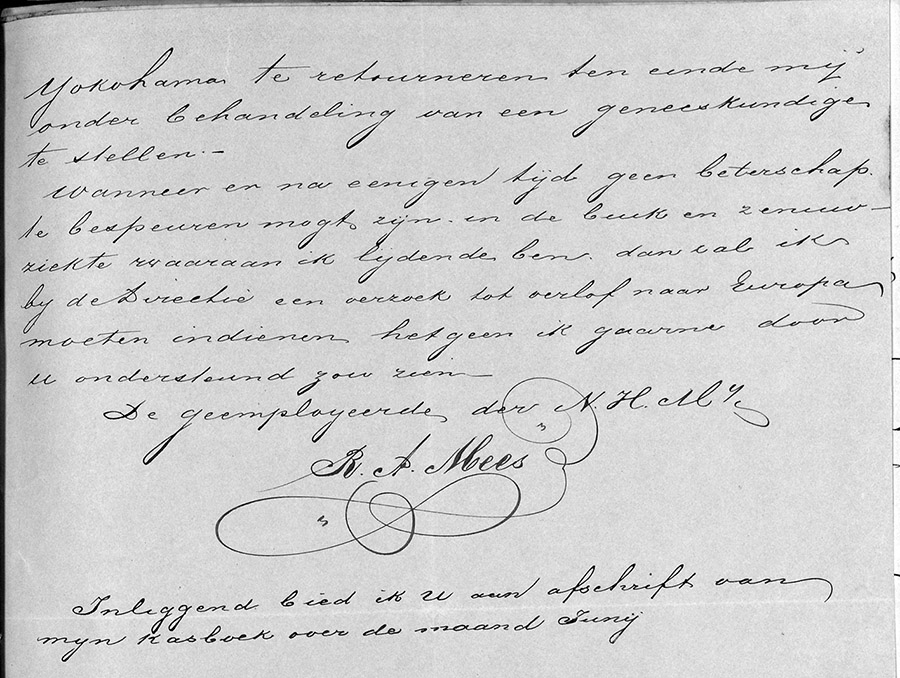 Yokohama te retourneren ten einde mij
onder behandeling van een geneeskundige
te stellen.-
Wanneer er na eenigen tijd geen beterschap.
te bespeuren mogt zijn in de buik en zenuw-
ziekte waaraan ik lijdende ben. dan zal ik
by de Directie een verzoek tot verlof naar Europa
moeten indienen hetgeen ik gaarne door
u ondersteund zou zien-
De geemployeerde der N. H. My
R. A. Mees
Inliggend bied ik U aan afschrift van
myn kasboek over de maand Junij